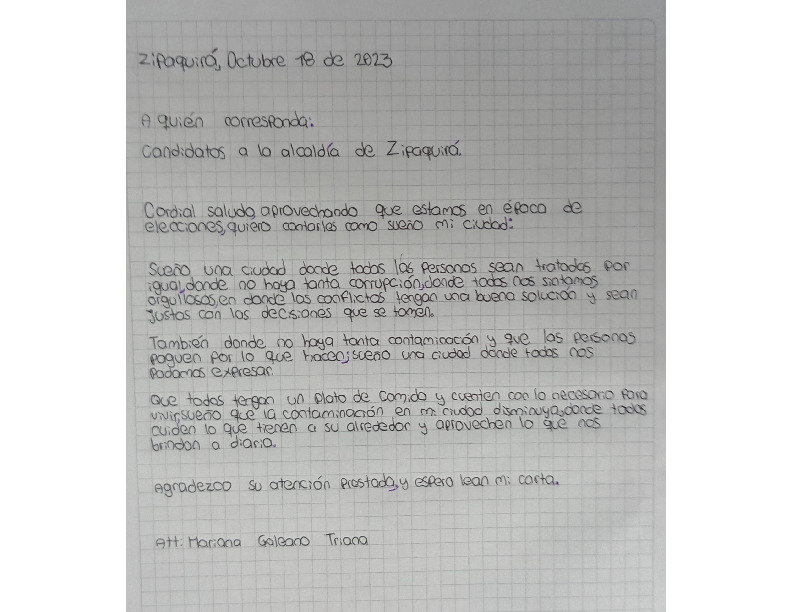 Zipaquirá, Octubre 18 de 2023
A quién corresponda:
Candidatos a la alcaldía de Zipaquirá.
Cordial saludo, aprovechando que estamos en época de
elecciones, quiero contarles como sueño mi ciudad:
Sueño una ciudad donde todas las personas sean tratadas por
igual, donde no haya tanta corrupción, donde todos nos sintamos
orgullosos, en donde los conflictos tengan una buena solución y sean
justos con las decisiones que se tomen.
También donde no haya tanta contaminación y que las personas
paguen por lo que hacen; sueño una ciudad donde todos nos
podamos expresar.
Que todos tengan un plato de comida y cuenten con lo necesario para
vivir, sueño que la contaminación en mi ciudad disminuya, donde todos
cuiden lo que tienen a su alrededor y aprovechen lo que nos
brindan a diario.
Agradezco su atención prestada, y espero lean mi carta.
Att: Mariana Galeano Triana